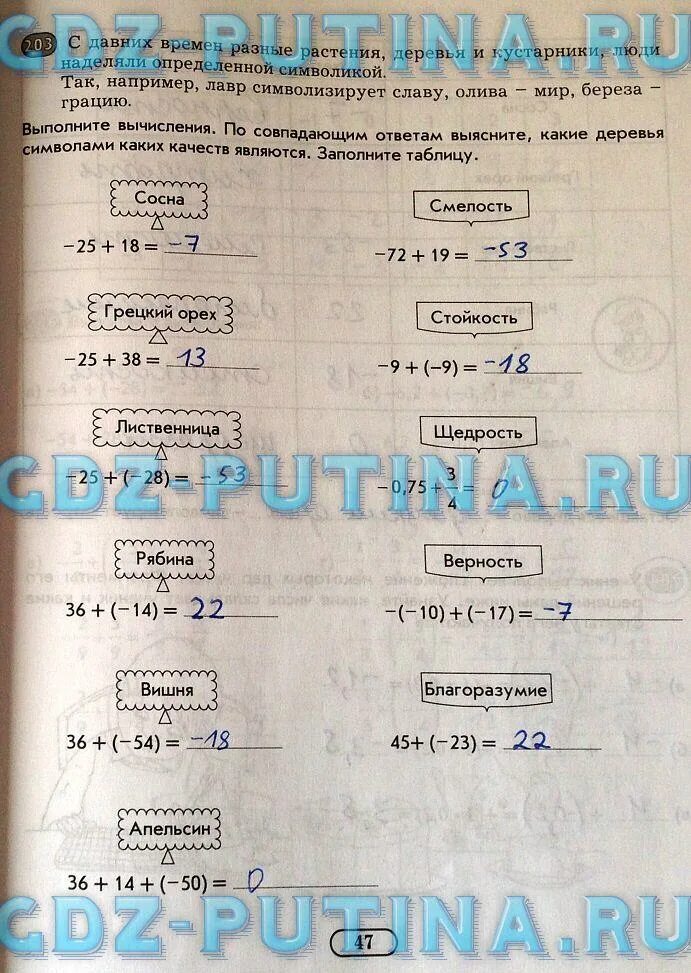 GDZ-PUTINA.RU
203 С давних времен разные растения, деревья и кустарники, люди
наделяли определенной символикой.
Так, например, лавр символизирует славу, олива – мир, береза –
грацию.
Выполните вычисления. По совпадающим ответам выясните, какие деревья
символами каких качеств являются. Заполните таблицу.
Сосна
−25 + 18 = −7
Смелость
−72 + 19 = −53
Грецкий орех
−25 + 38 = 13
Стойкость
−9 + (−9) = −18
Лиственница
−25 + (−28) = −53
Щедрость
−0,75 + 3/4 = 0
GDZ-PUTINA.RU
Рябина
36 + (−14) = 22
Верность
−(−10) + (−17) = −7
Вишня
36 + (−54) = −18
Благоразумие
45+ (−23) = 22
Апельсин
36 + 14 + (−50) = 0
GDZ-PUTINA.RU
47